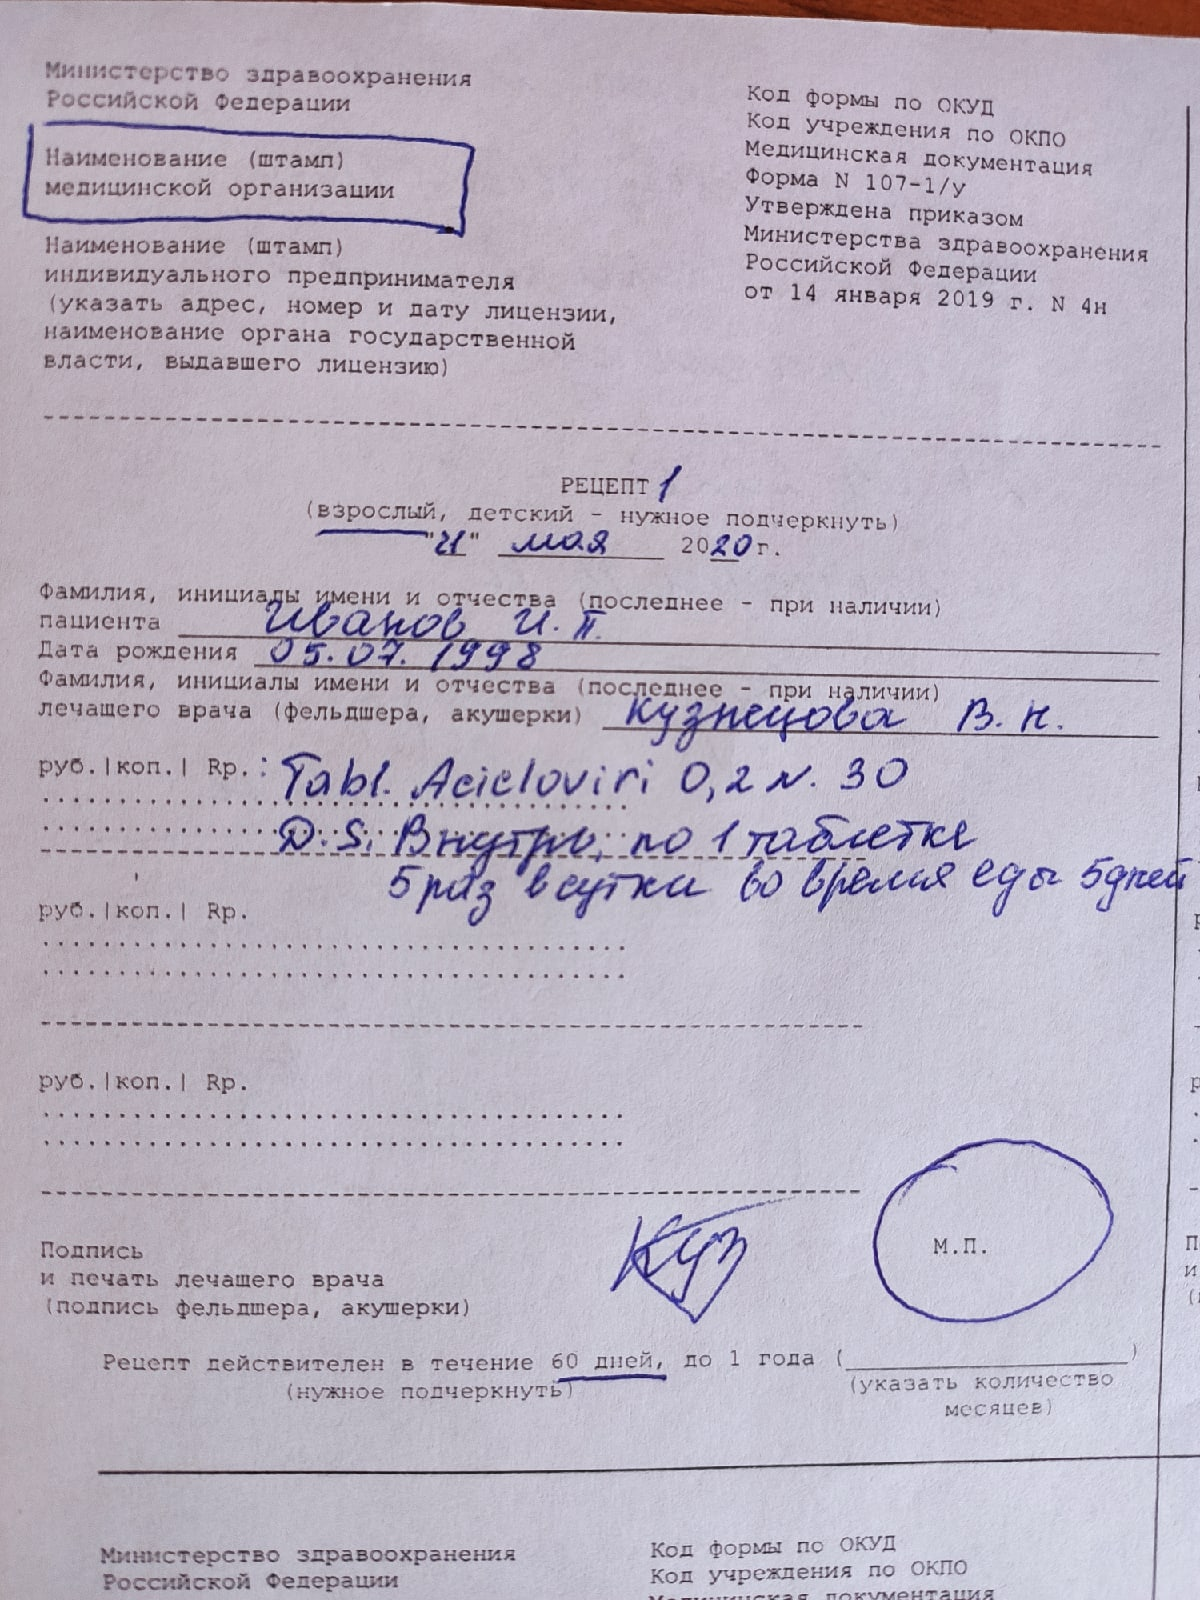 Министерство здравоохранения
Российской Федерации
Наименование (штамп)
медицинской организации
Наименование (штамп)
индивидуального предпринимателя
(указать адрес, номер и дату лицензии,
наименование органа государственной
власти, выдавшего лицензию)
Код формы по ОКУД
Код учреждения по ОКПО
Медицинская документация
Форма N 107-1/у
Утверждена приказом
Министерства здравоохранения
Российской Федерации
от 14 января 2019 г. N 4н
РЕЦЕПТ 1
(взрослый, детский - нужное подчеркнуть)
" " мая 2020 г.
Фамилия, инициалы имени и отчества (последнее - при наличии)
пациента Иванов И. П.
Дата рождения 05.07.1998
Фамилия, инициалы имени и отчества (последнее - при наличии)
лечащего врача (фельдшера, акушерки) Кузнецова В. Н.
руб.|коп.| Rp.: Tabl. Acicloviri 0,2 N. 30
D. S. Внутрь, по 1 таблетке
5 раз в сутки во время еды 5 дней
руб.|коп.| Rp.
руб.|коп.| Rp.
Подпись
и печать лечащего врача
(подпись фельдшера, акушерки)
Куз
М.П.
Рецепт действителен в течение 60 дней, до 1 года (            )
(нужное подчеркнуть)
(указать количество
месяцев)
Министерство здравоохранения
Российской Федерации
Код формы по ОКУД
Код учреждения по ОКПО
Медицинская документация